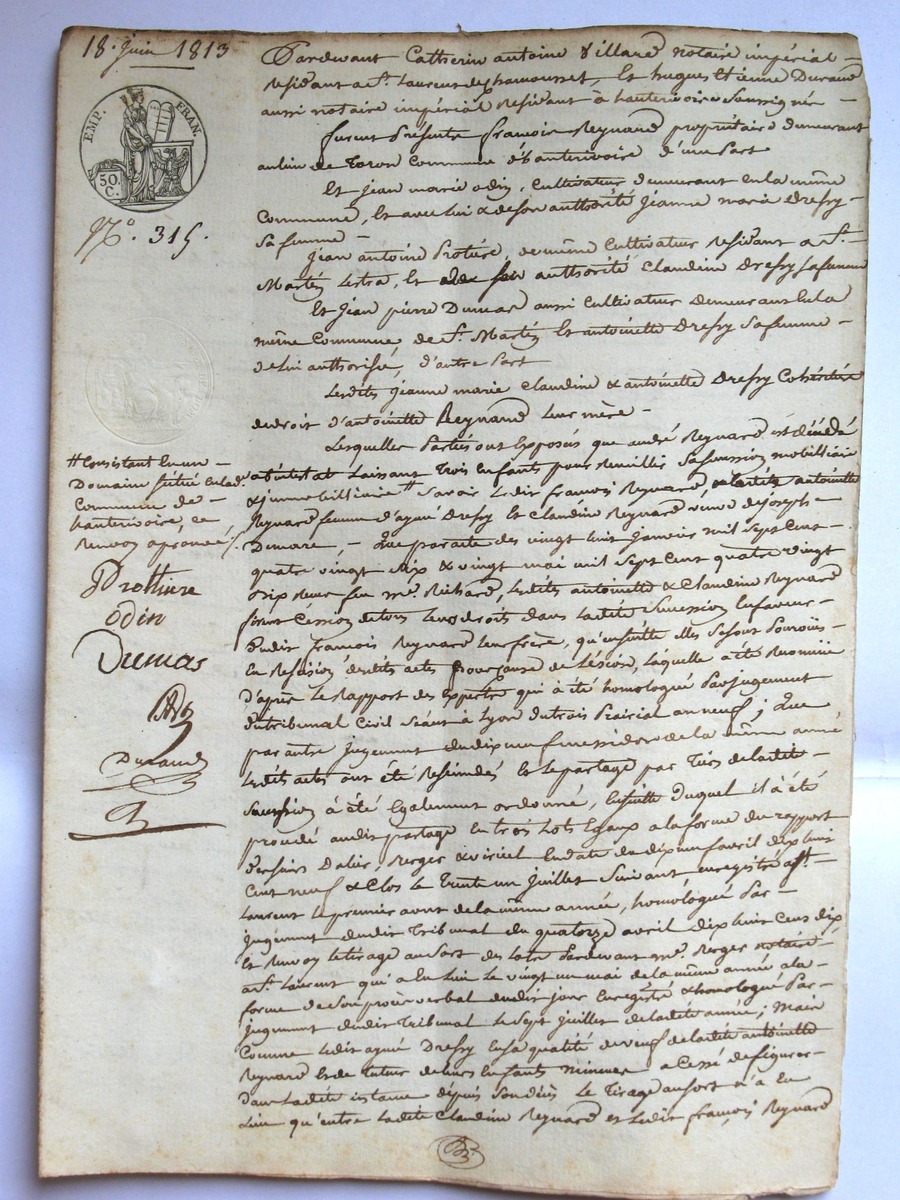 18. Juin 1813
EMP. FRAN.
50. C.
N.° 315.
Pardevant Catherin antoine Villard notaire impérial
résidant à St. Laurent de chamousset, Et hugues Etienne Durand
aussi notaire impérial résidant à hauterivoire Soussignés
furent Présents françois Reynard propriétaire demeurant
au lieu de Toron Commune d'hauterivoire d'une Part
Et jean marie odin, Cultivateur demeurant en la même
Commune, Et avec lui & de son authorité jeanne marie Dressy
Sa femme
jean antoine Protière, de même Cultivateur résidant à St.
Martin Lestra, Et de son authorité Claudine Dressy sa femme
Et jean pierre Dumas aussi Cultivateur demeurant en la
même Commune de St. Martin Et antoinette Dressy Sa femme
de lui authorisée, d'autre Part
Lesdites jeanne marie Claudine & antoinette Dressy Cohéritières
de droit d'antoinette Reynard leur mère
Lesquelles Parties ont Exposés que andré Reynard est décédé
abintestat laissant Trois Enfants pour recueillir sa succession mobilliaire
& immobilliaire # savoir ledit françois Reynard, ladite antoinette
Reynard femme d'aymé Dressy Et Claudine Reynard veuve de joseph
Demare, Que par acte des vingt huit janvier mil sept cent
quatre vingt dix & vingt mai mil sept cent quatre vingt
dix reçus feu me. Richard, lesdites antoinette & Claudine Reynard
firent Cession de tous leurs droits dans ladite Succession En faveur
dudit françois Reynard leur frère, qu'ensuitte elles se sont Pourvües
En rescision desdits actes pour cause de lésion, laquelle a été reconnue
d'après le rapport des Experts qui a été homologué Par jugement
du tribunal Civil séant à Lyon du trois Prairial an neuf; Que
par autre jugement du dix neuf messidor de la même année
lesdits actes ont été rescindés Et le partage par Tiers de ladite
Succession a été Egalement ordonné, Ensuitte duquel il a été
procédé audit partage En trois Lots Egaux a la forme du rapport
des sieurs Dalin, Berger & viriel En date du dix neuf avril dix huit
Cent neuf & Clos le Trente un juillet Suivant, enregistré à St.
Laurent le premier aout de la même année, homologué Par
jugement dudit Tribunal du quatorze avril dix huit Cent dix
Et renvoy le tirage au Sort des lots Pardevant me. Berger notaire
à St. Laurent qui a Eu lieu le vingt un mai de la même année a la
forme de Son procès verbal dudit jour Enregistré & homologué Par
jugement dudit Tribunal le Sept juillet de ladite année; Mais
Comme ledit aymé Dressy En sa qualité de veuf de ladite antoinette
Reynard Et de tuteur de leurs Enfants mineurs a Cessé de figurer
Dans ladite instance depuis Son décès le Tirage au sort n'a Eu
Lieu qu'entre ladite Claudine Reynard et ledit françois Reynard
# Consistant En un
Domaine situé en lad.
Commune de
hauterivoire, ce
renvoy aprouvé
Prothiere
odin
Dumas
Durand